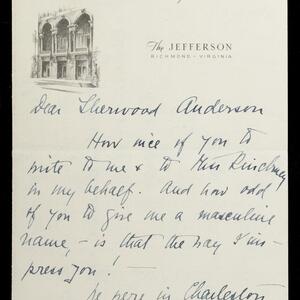 The JEFFERSON
RICHMOND - VIRGINIA
Dear Sherwood Anderson
How nice of you to
write to me & to Miss Pinckney
in my behalf. And how odd
of you to give me a masculine
name, - is that the way I im-
press you!
We were in Charleston